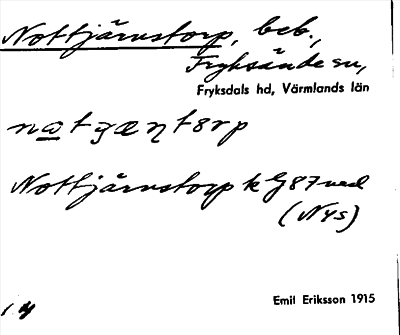 Nottjärnstorp, beb.,
Fryksände sn,
Fryksdals hd, Värmlands län
Nottjärnstorp k
(Nys)
Emil Eriksson 1915